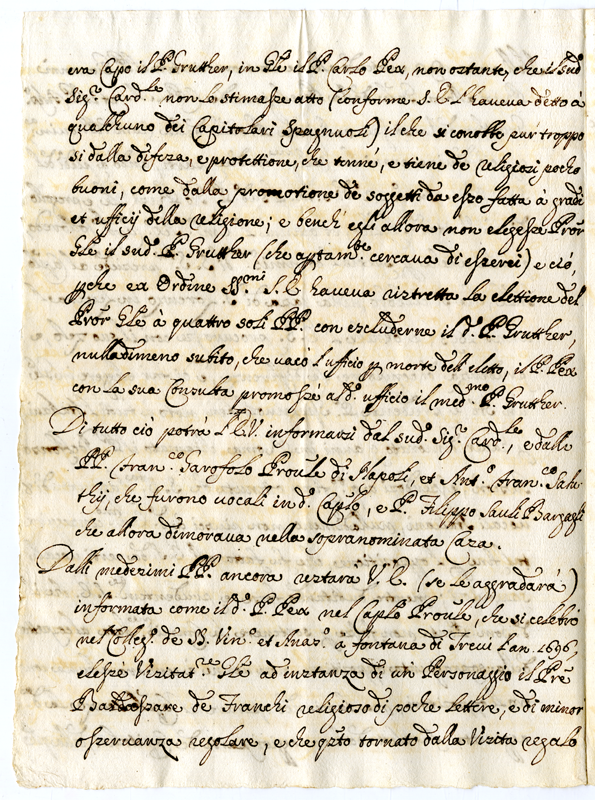 era Capo il P. Gruther, in Gle il P. Carlo Pex, non ostante, che il sud.º
Sig.r Card.le non lo stimasse atto (conforme S. E. l'haveva detto à
qualchuno dei Capitolari Spagnuoli) il che si conobbe pur troppo
si dalla difeza, e protettione, che tenné, e tiene de religiosi pocho
buoni, come dalla promotione de soggetti da esso fatta à gradi
et ufficij della religione; e bench' egli allora non elegesse Pror
Gle il sud.º P. Gruther (che aptam.te cercava di esserci) e ciò,
pche ex Ordine SS.mi S. E. haveva riztretta la elettione del
Pror Gle à quattro soli PP. con escluderne il d.º P. Gruther,
nulladimeno subito, che vacò l'ufficio p morte dell'eletto, il P. Pex
con la sua Consulta promossé a d.º ufficio il med.mo P. Gruther.
Di tutto ciò potrà l'E.V. informarzi dal sud.º Sig.r Card.le, e dalli
PP. Fran.co Garofolo Proule di Napoli, et Ant.º Fran.co Salu-
thij, che furono vocali in d.º Caplo, e P. Filippo Sauli Bargagli
che allora dimorava nella sopranominata Caza.
Dalli medezimi PP. ancora reztarà V. E. (se le aggradarà)
informata come il d.º P. Pex nel Caplo Proule, che si celebrò
nel Colleg.º de SS. Vin.º et Anas.º à fontana di Trevi l'an. 1696,
elesse Vizitat.re Gle ad inztanza di un Personaggio il Pre
Baldassare de Franchi religioso di poche lettere, e di minor
osservanza regolare, e che qsto tornato dalla Vizita regalò